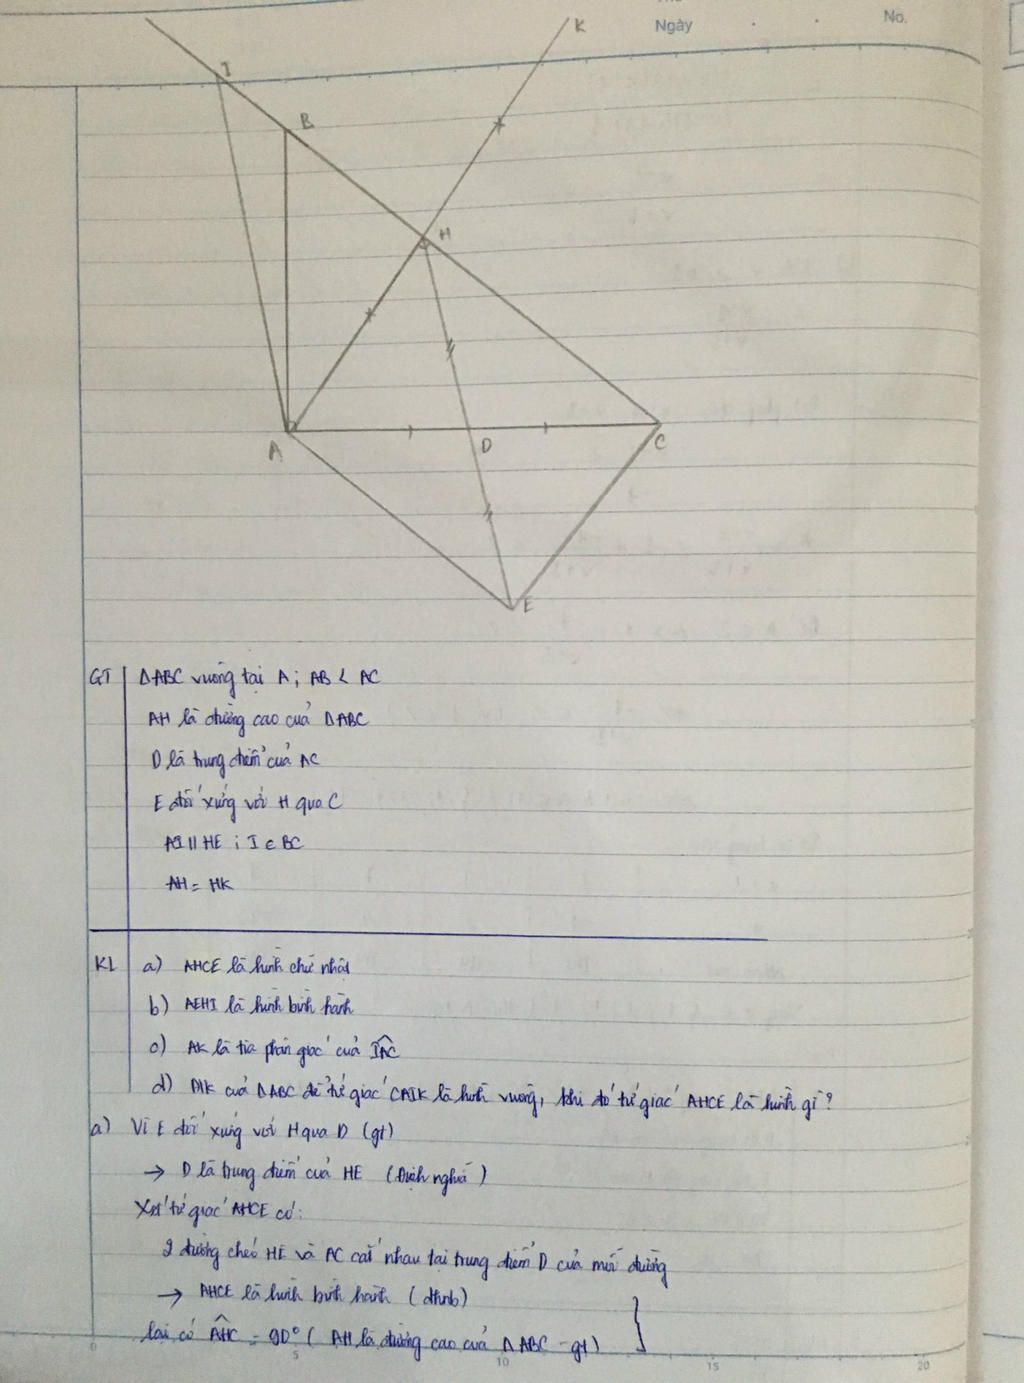 Ngày . .
No.
K
I
B
H
A
D
C
E
GT
ΔABC vuông tại A ; AB < AC
AH là đường cao của ΔABC
D là trung điểm của AC
E đối xứng với H qua C
AI // HE ; I ∈ BC
AH = HK
KL
a) AHCE là hình chữ nhật
b) AEHI là hình bình hành
c) AK là tia phân giác của IAC
d) ĐK của ΔABC để tứ giác CAIK là hình vuông, khi đó tứ giác AHCE là hình gì ?
a) Vì E đối xứng với H qua D (gt)
→ D là trung điểm của HE (Định nghĩa)
Xét tứ giác AHCE có:
2 đường chéo HE và AC cắt nhau tại trung điểm D của mỗi đường
→ AHCE là hình bình hành (dhnb)
lại có AHC = 90° ( AH là đường cao của Δ ABC - gt) }
0 5 10 15 20